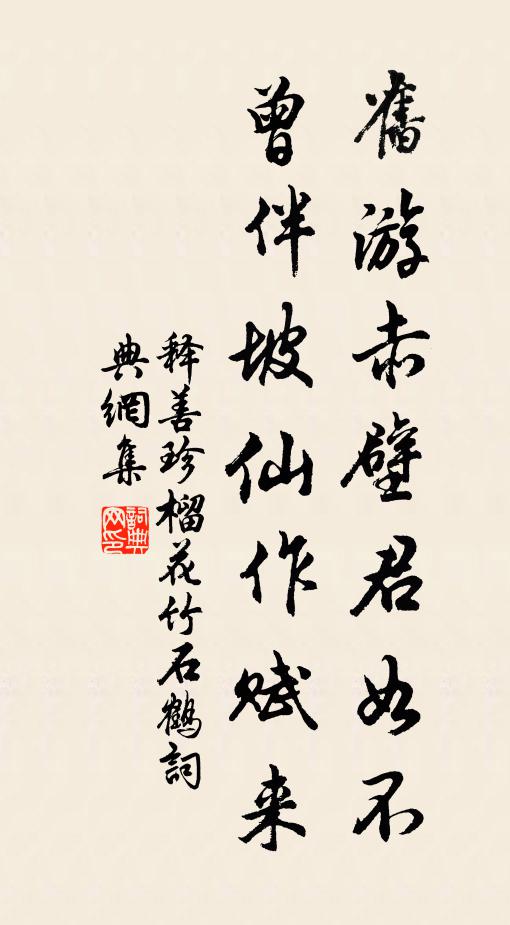 舊游赤壁君如不
曾伴坡仙作赋来
释善珍榴花竹石鶴詞
典網集
詞典网印